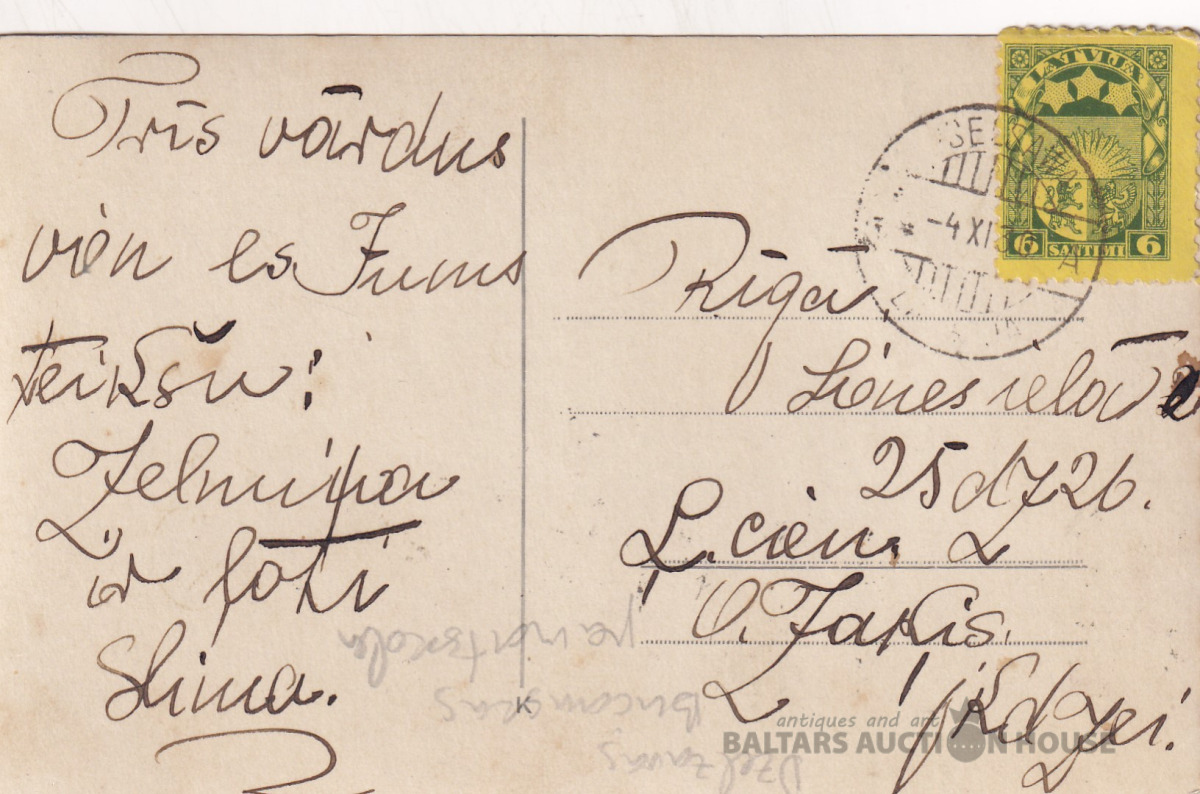 Trīs vārdus
vien es Jums
teikšu:
Zelmiņa
ir ļoti
slima.
LATVIJA
6 SANTIMI 6
-4 XI
A
Rīgā,
ielā
25 dz 26.
Ļ. cien.
O. Zaķis
jkdzei.
antiques and art
BALTARS AUCTION HOUSE
K